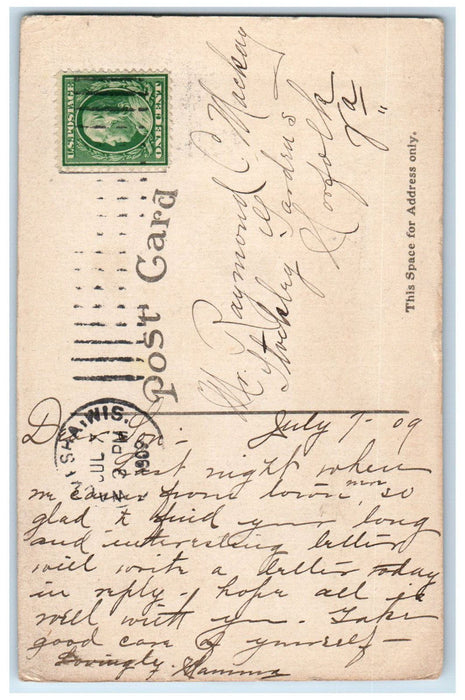 U.S. POSTAGE
ONE CENT
Post Card
This Space for Address only.
Mr. Raymond C Mackay
Stockley Gardens
Norfolk
Va
WIS.
JUL 7
2 PM
1909
July 7 - 09
Last night when
we came from town, so
glad to find your long
and interesting letter
will write a letter today
in reply - hope all is
well with you. Take
good care of yourself -
Lovingly, Mamma